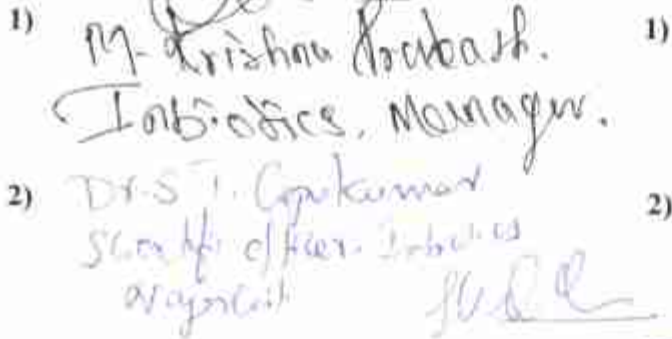 1) M. Krishna Prakash. 1)
Inbiotics, Manager.
2) Dr. S. T. Gopukumar 2)
Scientific officer. Inbiotics